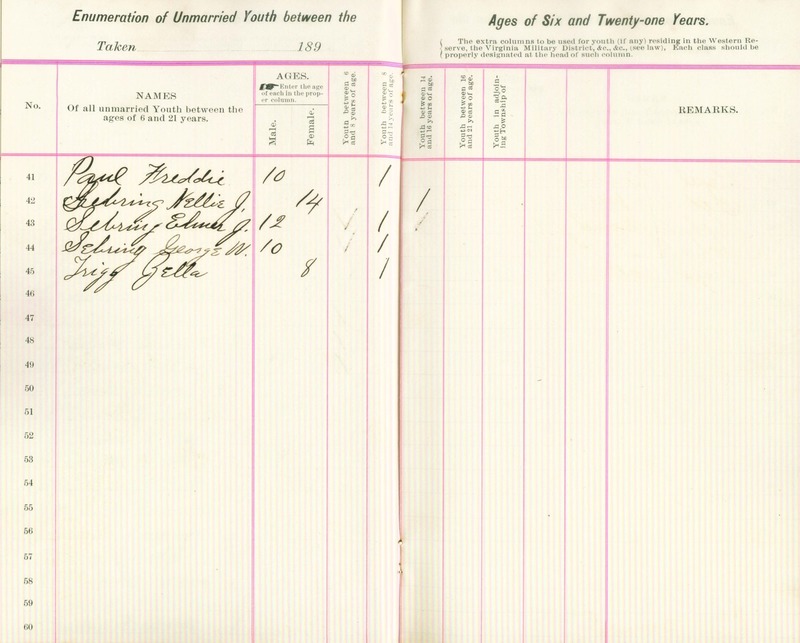 Enumeration of Unmarried Youth between the
Taken 189
No.
NAMES
Of all unmarried Youth between the
ages of 6 and 21 years.
AGES.
Enter the age
of each in the prop-
er column.
Male.
Female.
Youth between 6
and 8 years of age.
Youth between 8
and 14 years of age.
41 Paul Freddie 10 1
42 Sebring Nellie J. 14 1
43 Sebring Elmer J. 12 1
44 Sebring George W. 10 1
45 Trigg Zella 8 1
46
47
48
49
50
51
52
53
54
55
56
57
58
59
60
Ages of Six and Twenty-one Years.
The extra columns to be used for youth (if any) residing in the Western Re-
serve, the Virginia Military District, &c., &c., (see law), Each class should be
properly designated at the head of such column.
Youth between 14
and 16 years of age.
Youth between 16
and 21 years of age.
Youth in adjoin-
ing Township of
REMARKS.